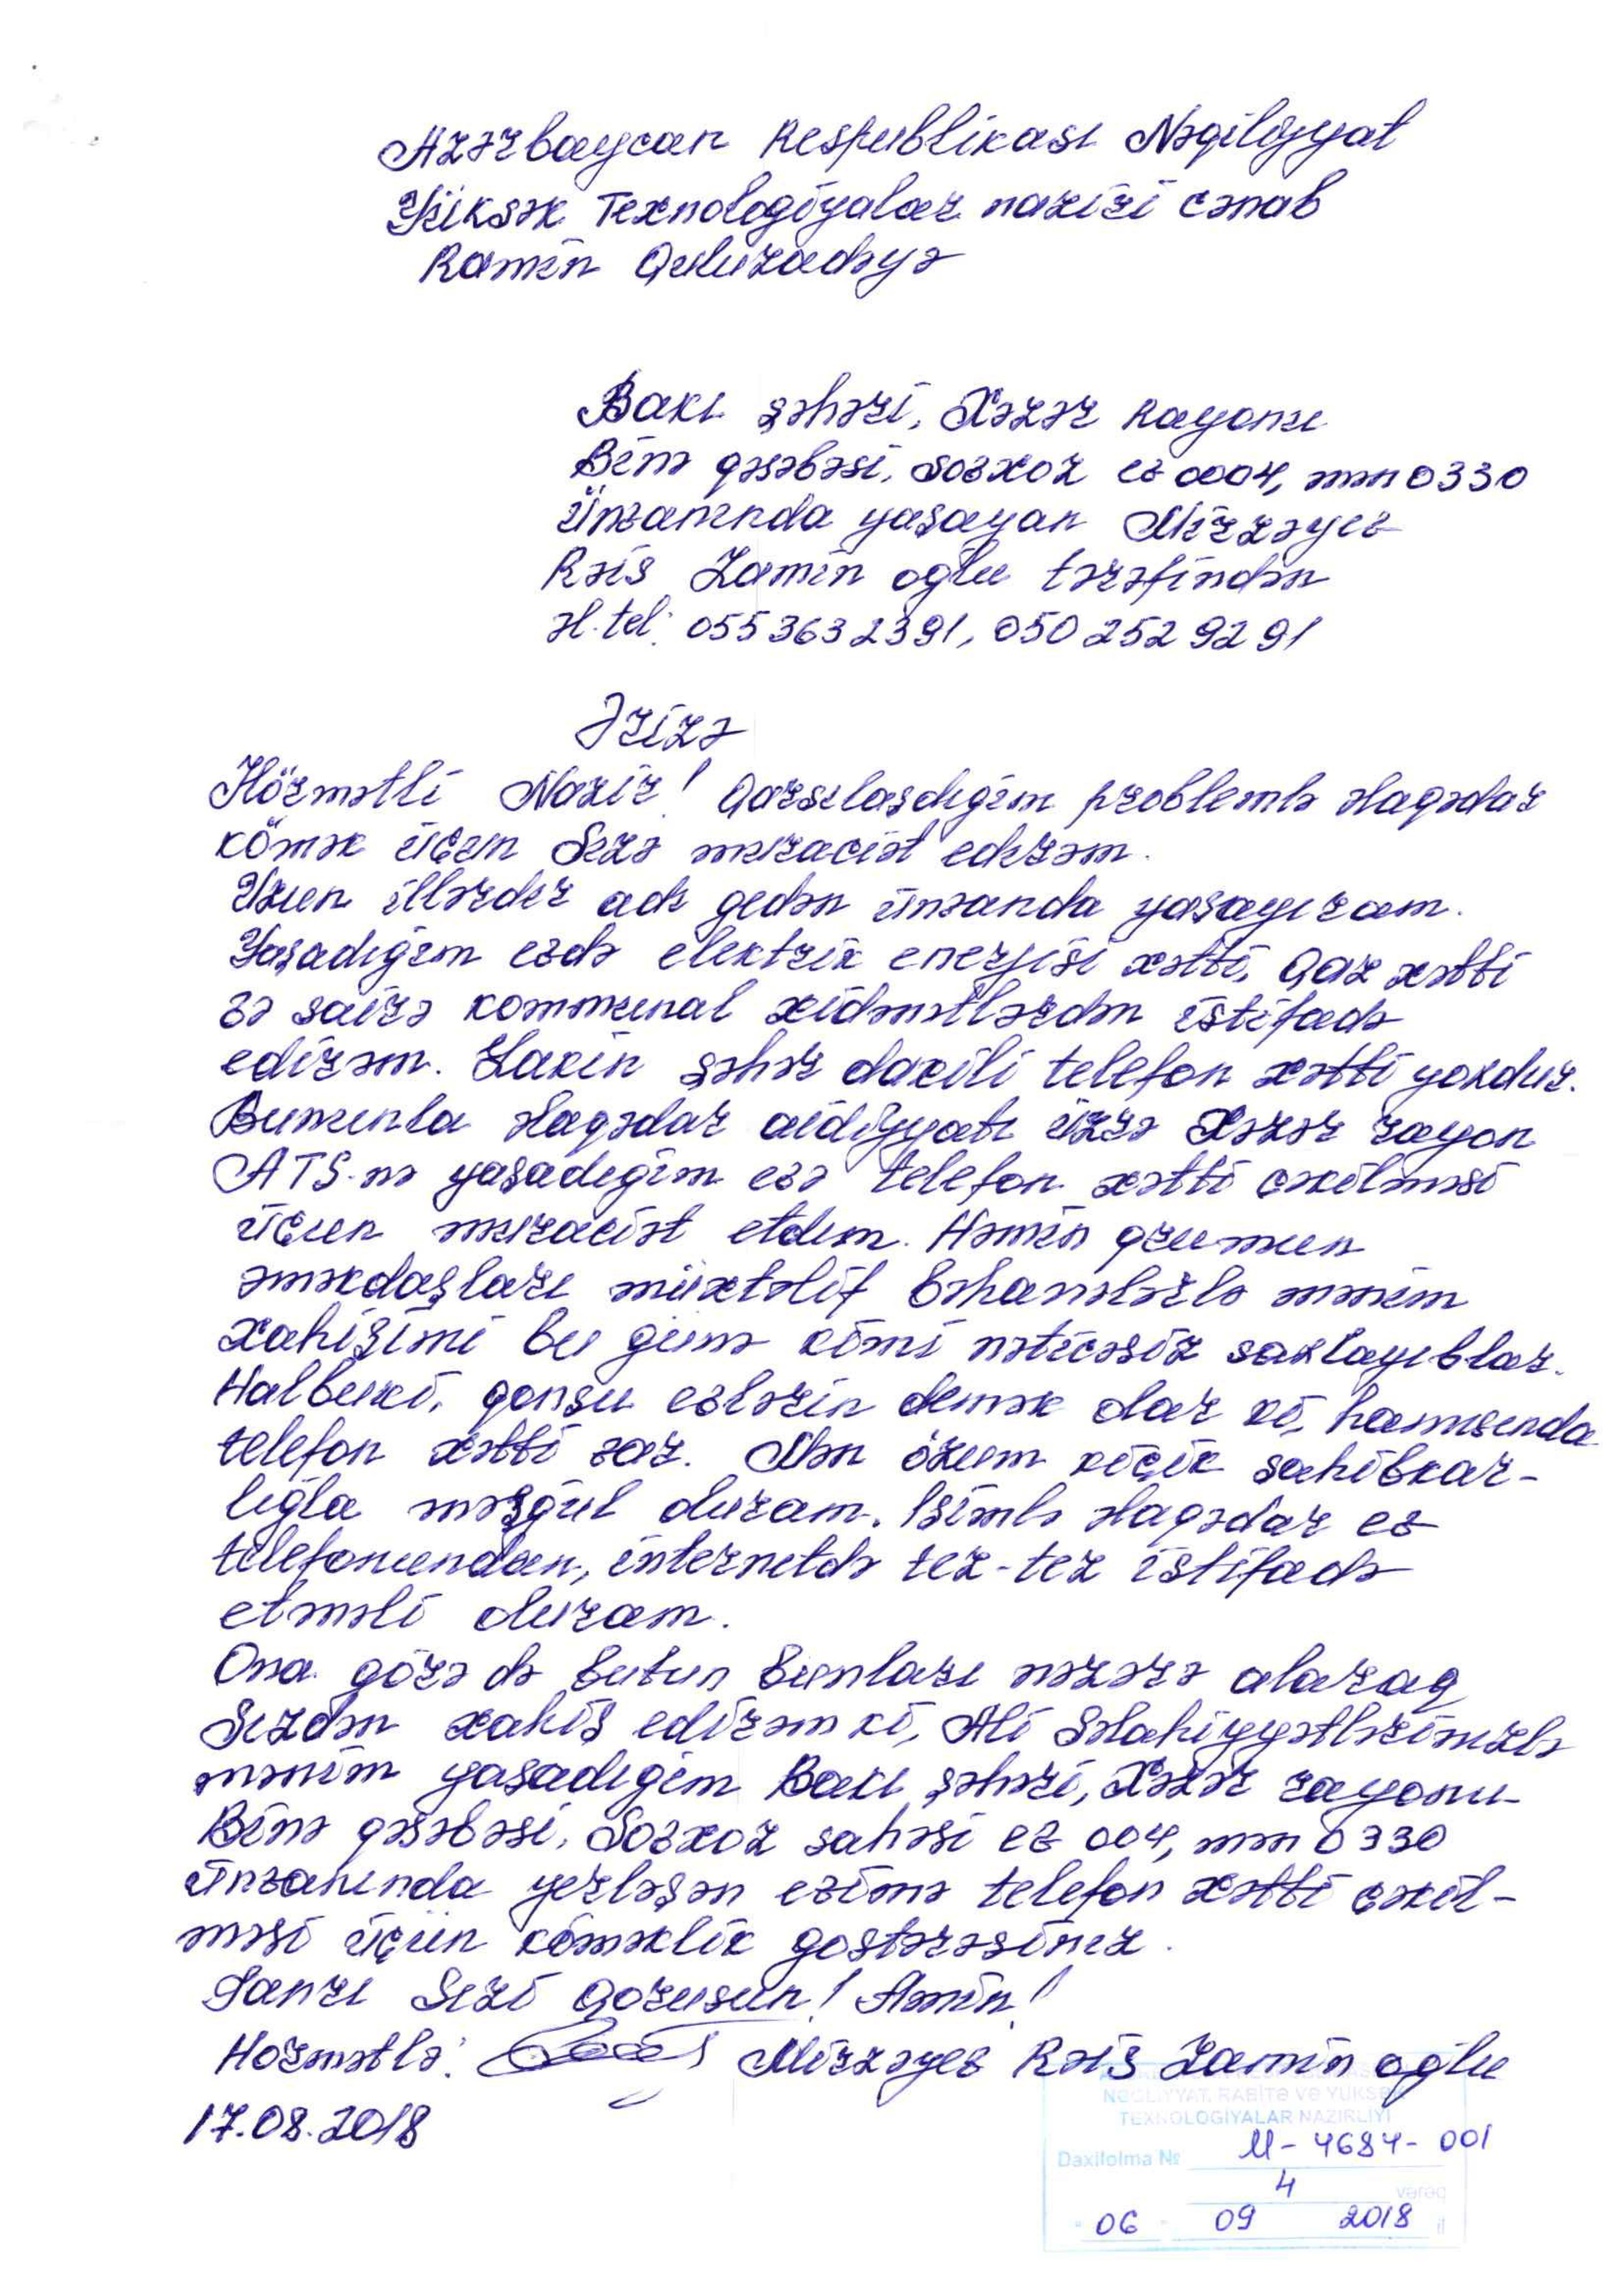 Azərbaycan Respublikası Nəqliyyat
Yüksək Texnologiyalar naziri cənab
Ramin Quluzadəyə
Bakı şəhəri, Xəzər Rayonu
Binə qəsəbəsi, Sovxoz ev 0004, mən 0330
ünvanında yaşayan Mirzəyev
Rəis Zamin oğlu tərəfindən
əl. tel: 055 363 23 91, 050 252 92 91
Ərizə
Hörmətli Nazir! Qarşılaşdığım problemlə əlaqədar
kömək üçün Sizə müraciət edirəm.
Uzun illərdir adı gedən ünvanda yaşayıram.
Yaşadığım evdə elektrik enerjisi xətti, Qaz xətti
və sairə kommunal xidmətlərdən istifadə
edirəm. Lakin şəhər daxili telefon xətti yoxdur.
Bununla əlaqədar aidiyyatı üzrə Xəzər rayon
ATS-nə yaşadığım evə telefon xətti çəkilməsi
üçün müraciət etdim. Həmin qrumun
əməkdaşları müxtəlif bəhanələrlə mənim
xahişimi bu günə kimi nəticəsiz saxlayıblar.
Halbuki, qonşu evlərin demək olar ki, hamısında
telefon xətti var. Mən özüm kiçik sahibkar-
lığla məşğul oluram. İşimlə əlaqədar ev
telefonundan, internetdə tez-tez istifadə
etməli oluram.
Ona görə də bütün bunları nəzərə alaraq
Sizdən xahiş edirəm ki, Ali Səlahiyyətlərinizlə
mənim yaşadığım Bakı şəhəri, Xəzər rayonu
Binə qəsəbəsi, Sovxoz sahəsi ev 004, mən 0330
ünvanında yerləşən evimə telefon xətti çəkil-
məsi üçün köməklik göstərəsiniz.
Tanrı Sizi qorusun! Amin!
Hörmətlə: Mirzəyev Rəis Zamin oğlu
17.08.2018
NƏQLİYYAT, RABİTƏ VƏ YÜKSƏK
TEXNOLOGİYALAR NAZİRLİYİ
Daxilolma № M-4684-001
4 vərəq
06 09 2018 il